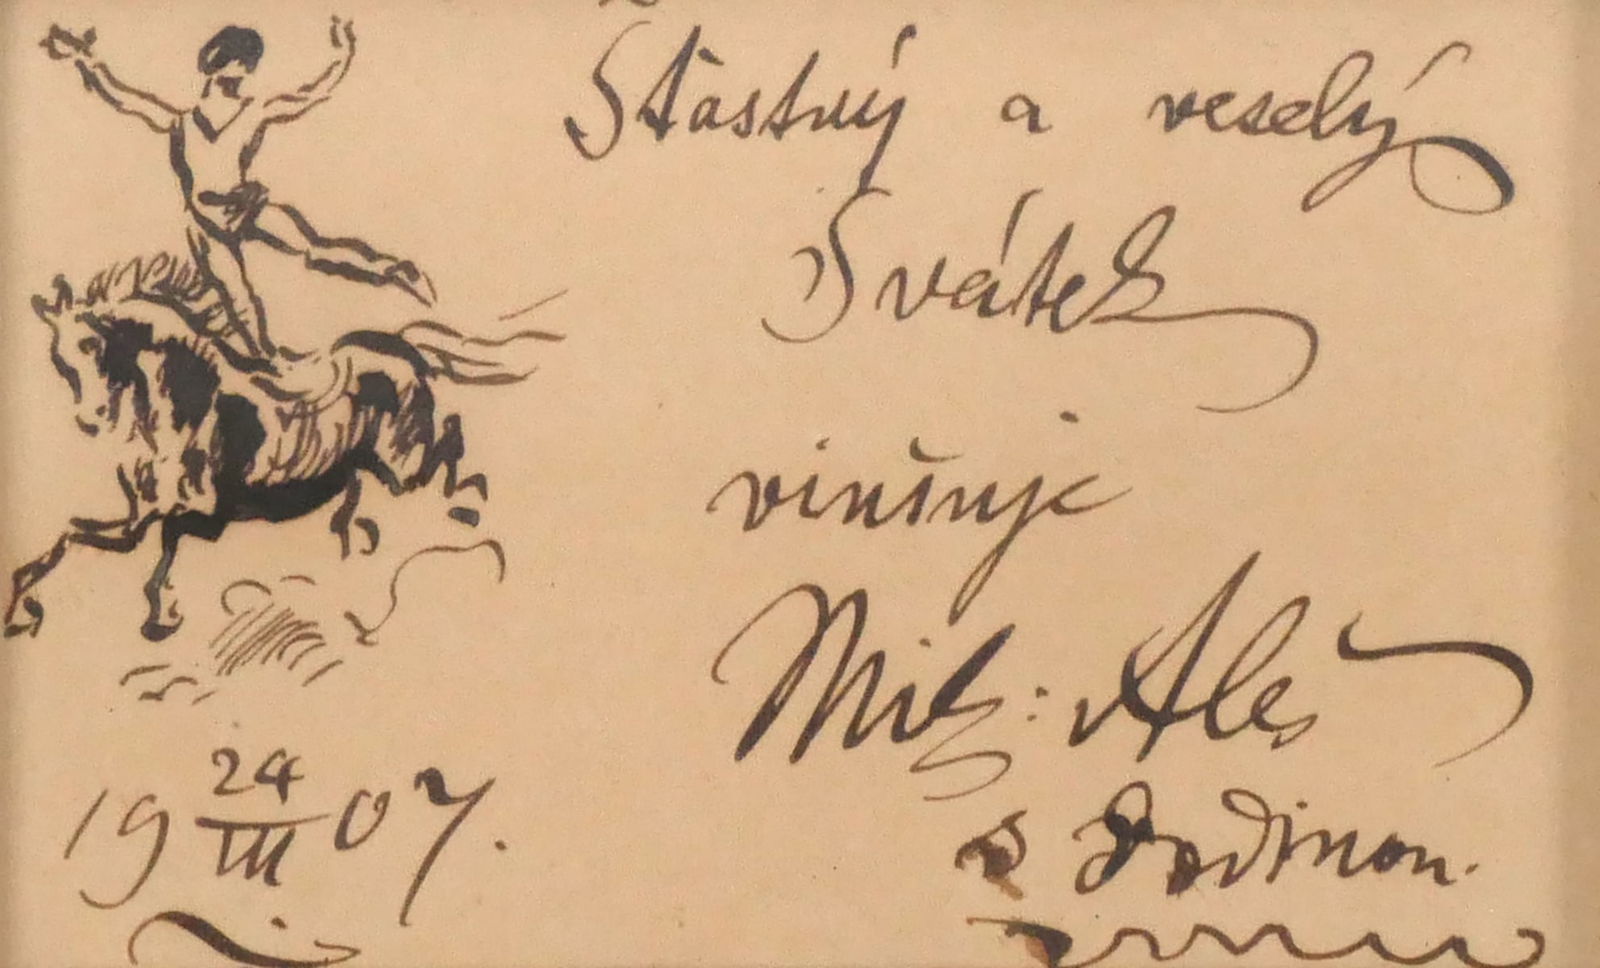 Šťastný a veselý
Svátek
vinšuje
Mik: Aleš
s Rodinou.
19 24/III 07.